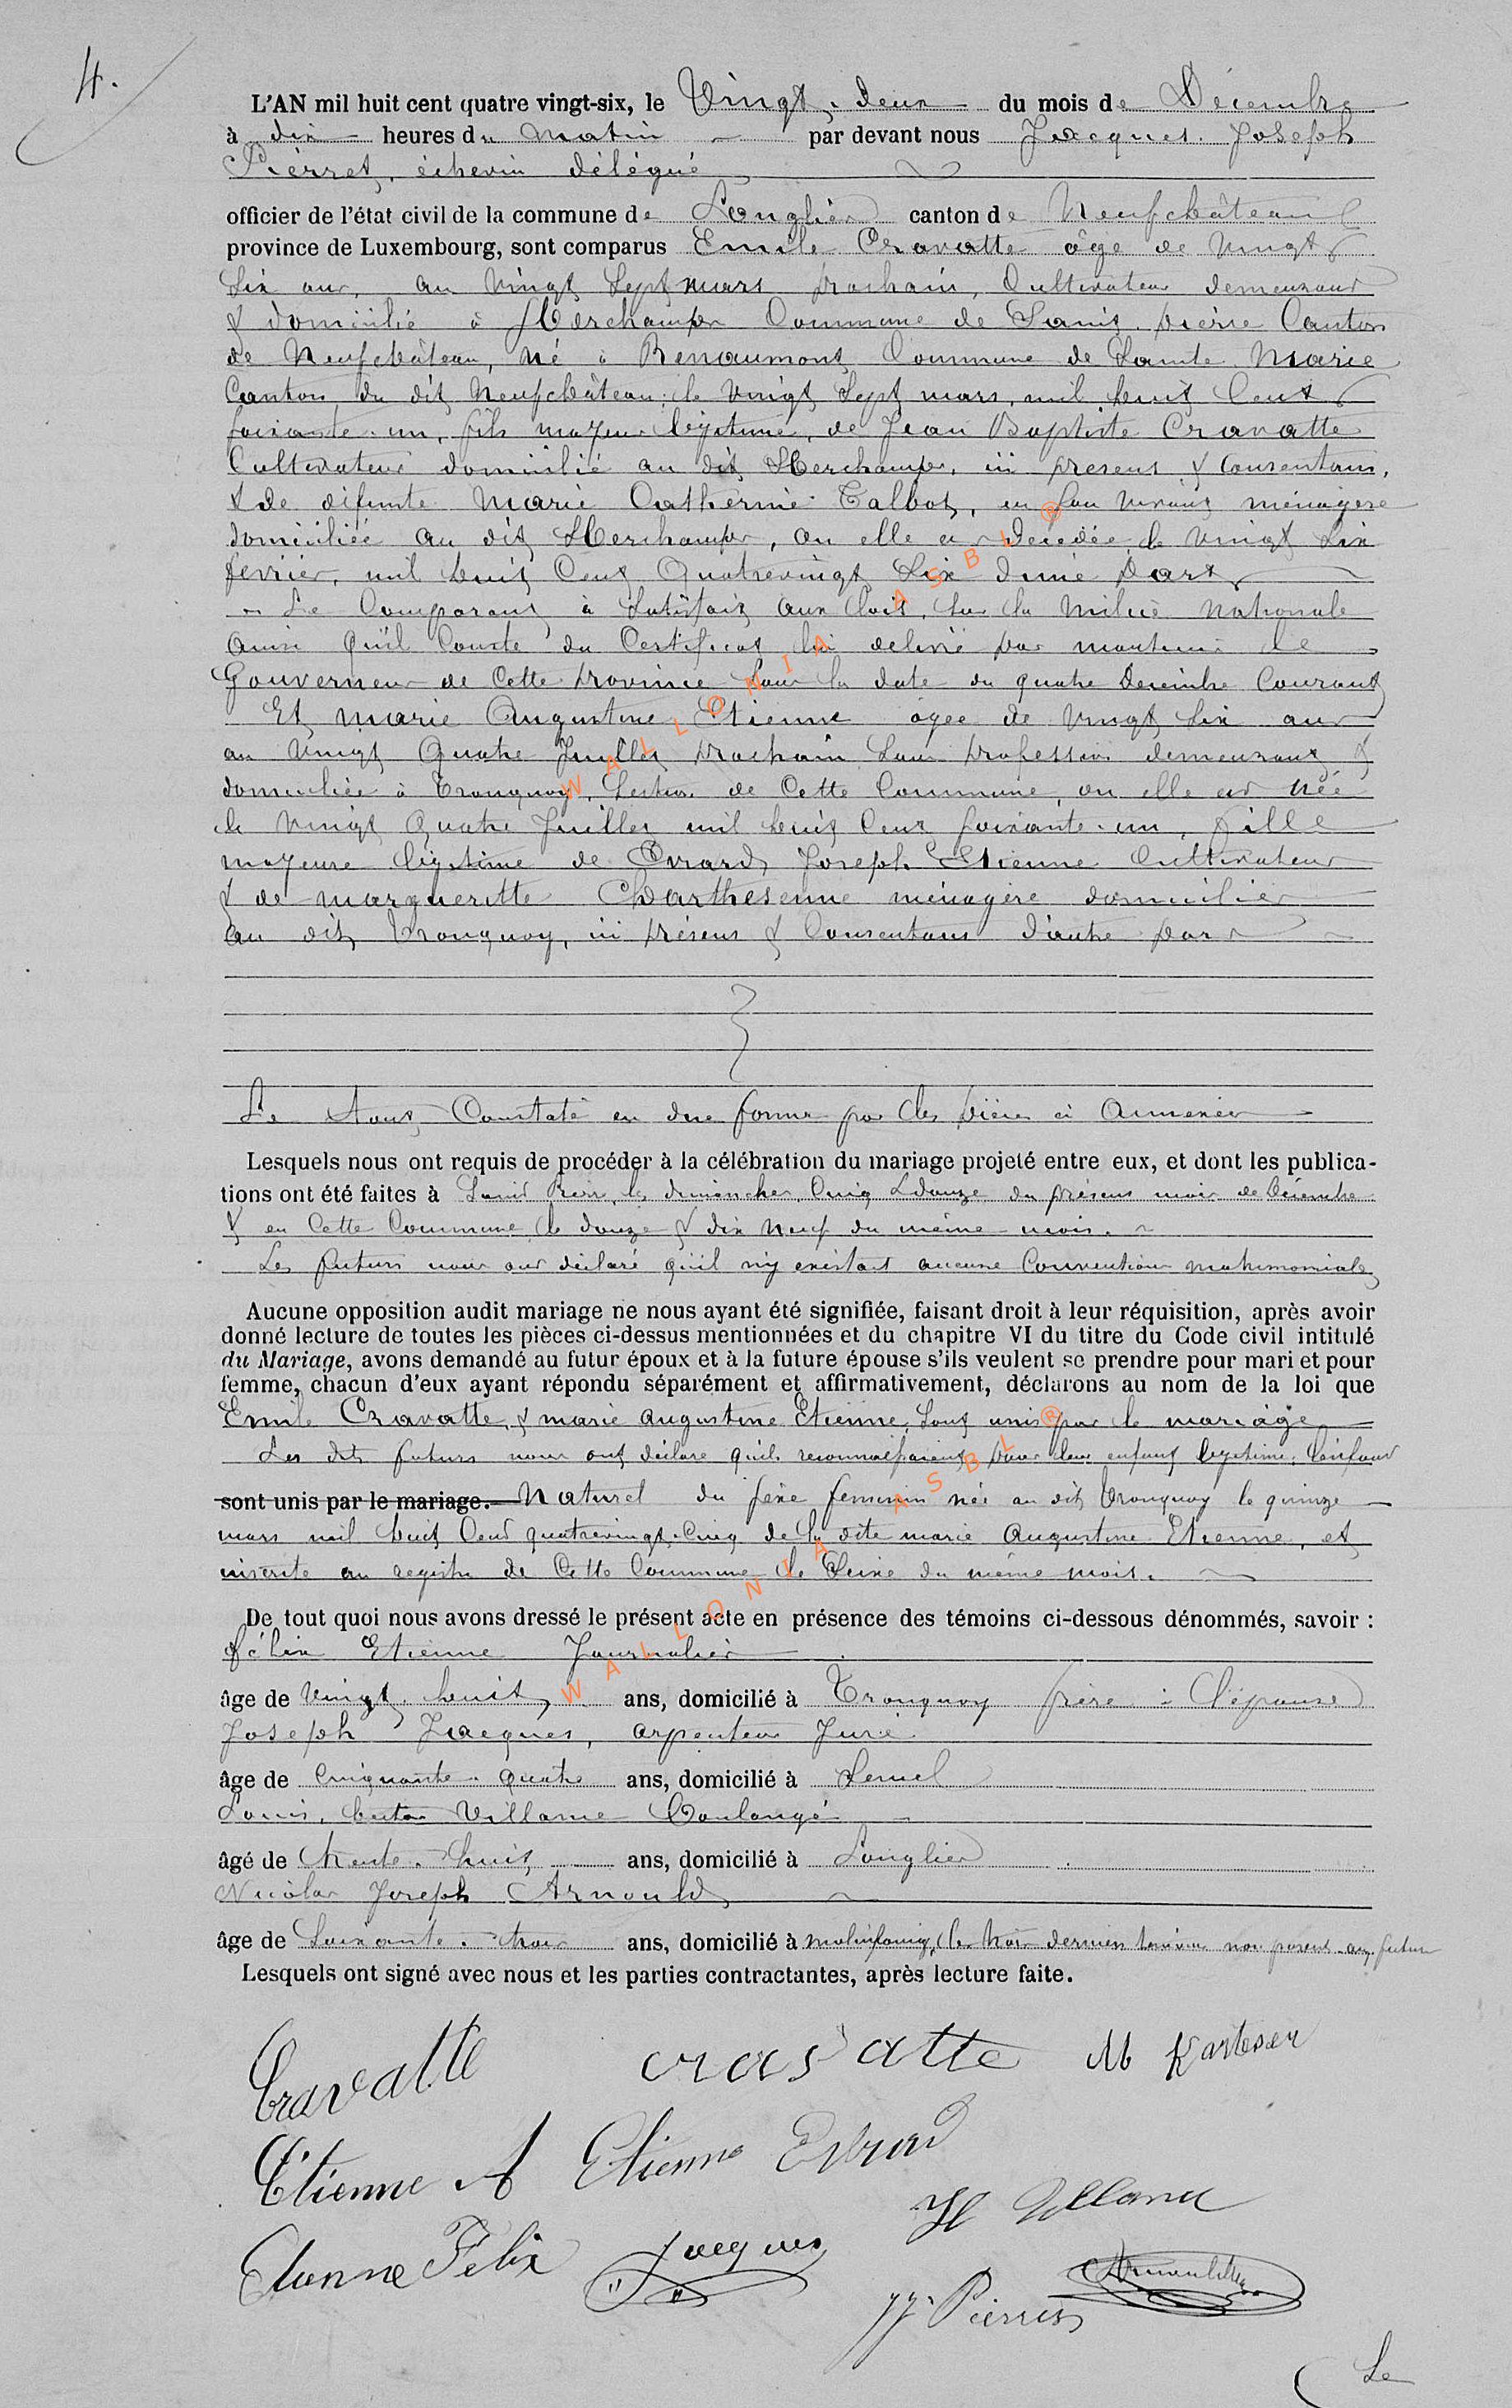 4.
L'AN mil huit cent quatre vingt-six, le Vingt-deux du mois de Décembre
à dix heures du matin par devant nous Jacques Joseph
Pierret, échevin délégué
officier de l'état civil de la commune de Longlier canton de Neufchâteau
province de Luxembourg, sont comparus Emile Cravatte âgé de vingt
six ans, au vingt sept mars prochain, Cultivateur demeurant
& domicilié à Herchamps Commune de Saint Pierre Canton
de Neufchâteau, né à Renaumont Commune de Sainte Marie
Canton du dit Neufchâteau, le vingt sept mars, mil huit Cent
soixante un, fils majeur légitime, de Jean Baptiste Cravatte
Cultivateur domicilié au dit Herchamps, ici présent & Consentant,
& de défunte Marie Catherine Talbot, en son vivant ménagère
domiciliée au dit Herchamps, où elle est décédée, le vingt six
février, mil huit Cent Quatrevingt Six d'une part
Le Comparant à satisfait aux lois, sur la milice nationale
ainsi qu'il Conste du Certificat lui délivré par monsieur le
Gouverneur de Cette province sous la date du quatre Décembre Courant
Et Marie Augustine Etienne âgée de vingt six ans
au vingt Quatre Juillet prochain sans profession demeurant &
domiciliée à Tronquoy, Section de Cette Commune, où elle est née
le vingt Quatre Juillet mil huit Cent soixante-un, fille
majeure légitime de Evrard Joseph Etienne Cultivateur
& de Margueritte Charthesenne ménagère domiciliés
au dit Tronquoy, ici présens & Consentans d'autre part
Le tout Constaté en due forme par les pièces ci Annexées
Lesquels nous ont requis de procéder à la célébration du mariage projeté entre eux, et dont les publica-
tions ont été faites à Saint Pierre, les dimanches Cinq & douze du présent mois de Décembre
& en Cette Commune le douze & dix neuf du même mois.
Les futurs nous ont déclaré qu'il n'y existait aucune Convention matrimoniale
Aucune opposition audit mariage ne nous ayant été signifiée, faisant droit à leur réquisition, après avoir
donné lecture de toutes les pièces ci-dessus mentionnées et du chapitre VI du titre du Code civil intitulé
du Mariage, avons demandé au futur époux et à la future épouse s'ils veulent se prendre pour mari et pour
femme, chacun d'eux ayant répondu séparément et affirmativement, déclarons au nom de la loi que
Emile Cravatte, & Marie Augustine Etienne, sont unis par le mariage
Les dits futurs nous ont déclaré qu'ils reconnaissaient pour leur enfant légitime, l'enfant
sont unis par le mariage. Naturel du sexe féminin née au dit Tronquoy le quinze
mars mil huit Cent quatrevingt-Cinq de la dite Marie Augustine Etienne, et
inscrite au registre de Cette Commune le Seize du même mois.
De tout quoi nous avons dressé le présent acte en présence des témoins ci-dessous dénommés, savoir :
Félix Etienne Journalier
âge de vingt huit ans, domicilié à Tronquoy frère à l'épouse
Joseph Jacques, arpenteur Juré
âge de Cinquante quatre ans, domicilié à Semel
Louis, Villance Boulanger
âgé de trente-huit ans, domicilié à Longlier
Nicolas Joseph Arnould
âge de Soixante-trois ans, domicilié à Molinfaing, les trois derniers témoins non parents aux futurs
Lesquels ont signé avec nous et les parties contractantes, après lecture faite.
Cravatte cravatte M Kartesen
Etienne A Etienne Evrard
H Villance
Etienne Felix Jacques
JJ. Pierret Arnould
Le
WALLONIA ASBL®
WALLONIA ASBL®